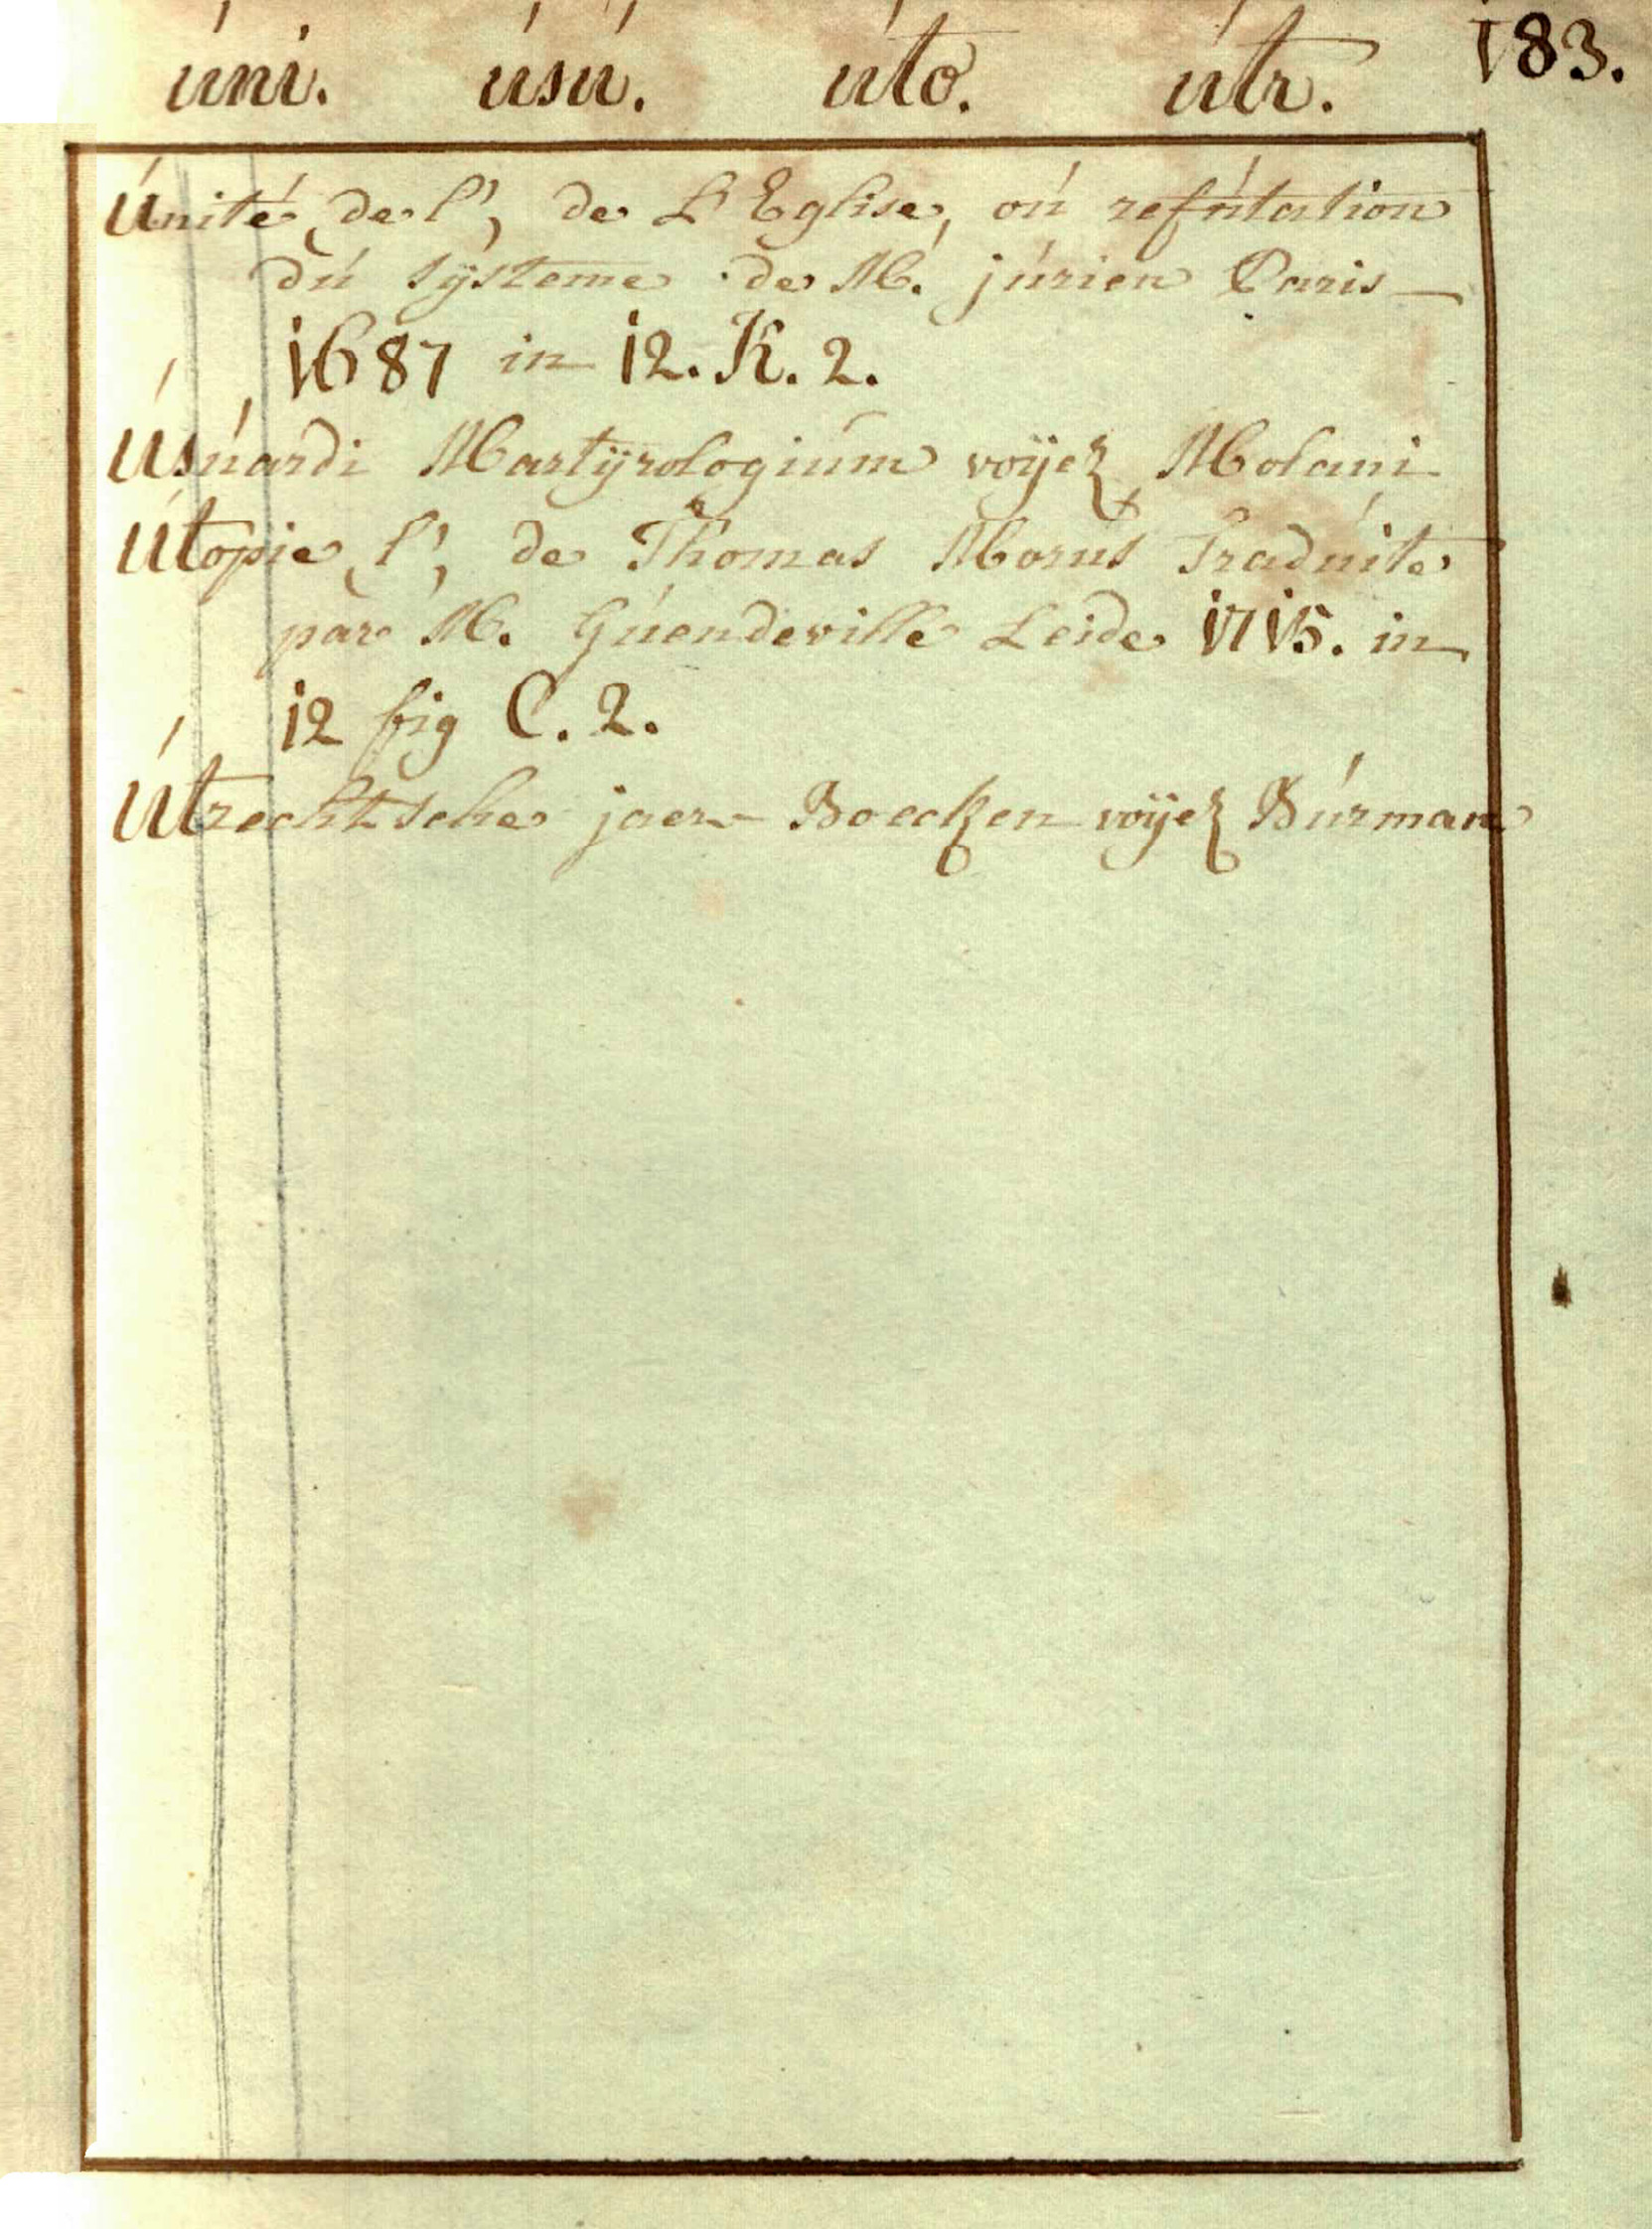 úni. úsú. úto. útr. 183.
Únité de l', de L'Eglise, oú refútation
dú sÿsteme de M. júrien Paris
1687 in 12. K. 2.
Úsúardi Martÿrologiúm voÿez Molani
Útopie l', de Thomas Morús Tradúite
par M. Gúendeville Leide 1715. in
12 fig C. 2.
Útrechtsche jaer Boecken voÿez Búrman